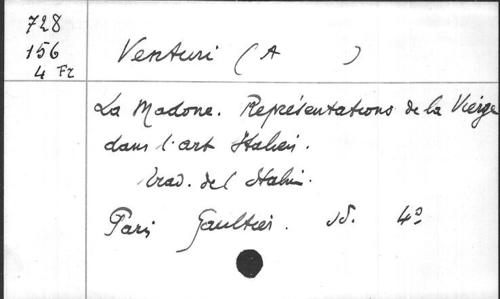 728
156
4 Fr
Venturi (A )
La Madone. Représentations de la Vierge
dans l'art Italien.
trad. de l'Italien.
Paris Gaultier. sd. 4°